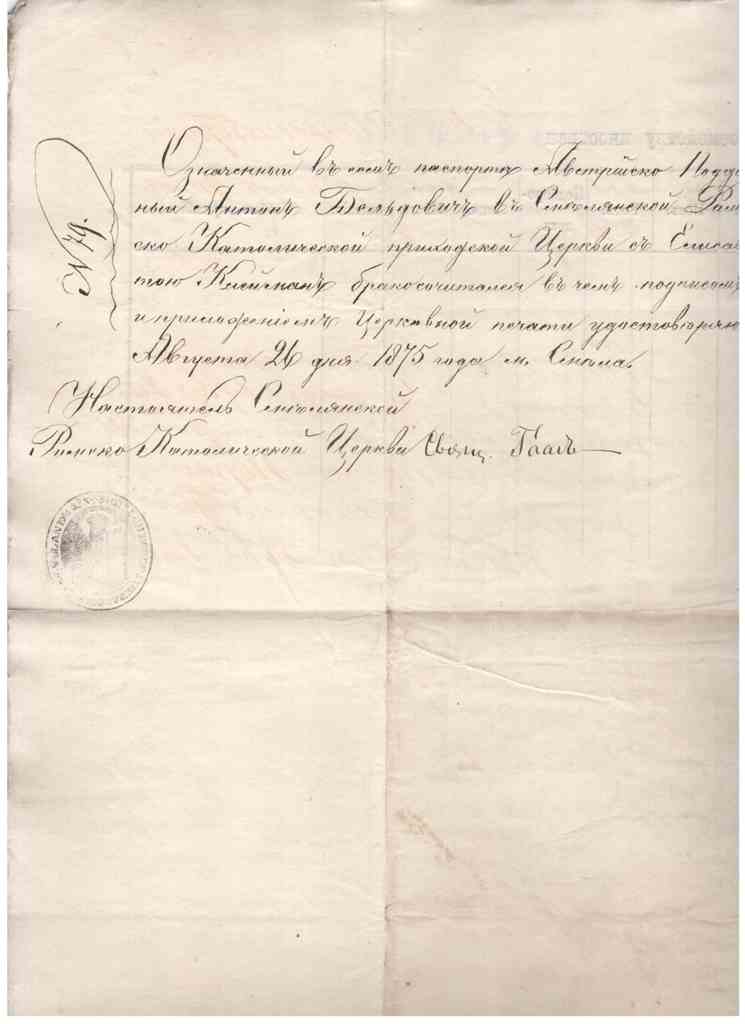 N 79.
Означенный въ семъ паспортѣ Австрійско Подда
ный Антонъ Бельдовичъ въ Смѣлянской Рим
ско Католической приходской Церкви съ Елиса
тою Клейманъ бракосочитался въ чемъ подписомъ
и приложеніемъ Церковной печати удостовѣряю
Августа 26 дня 1875 года м. Смѣла.
Настоятель Смѣлянской
Римско Католической Церкви Свящ.